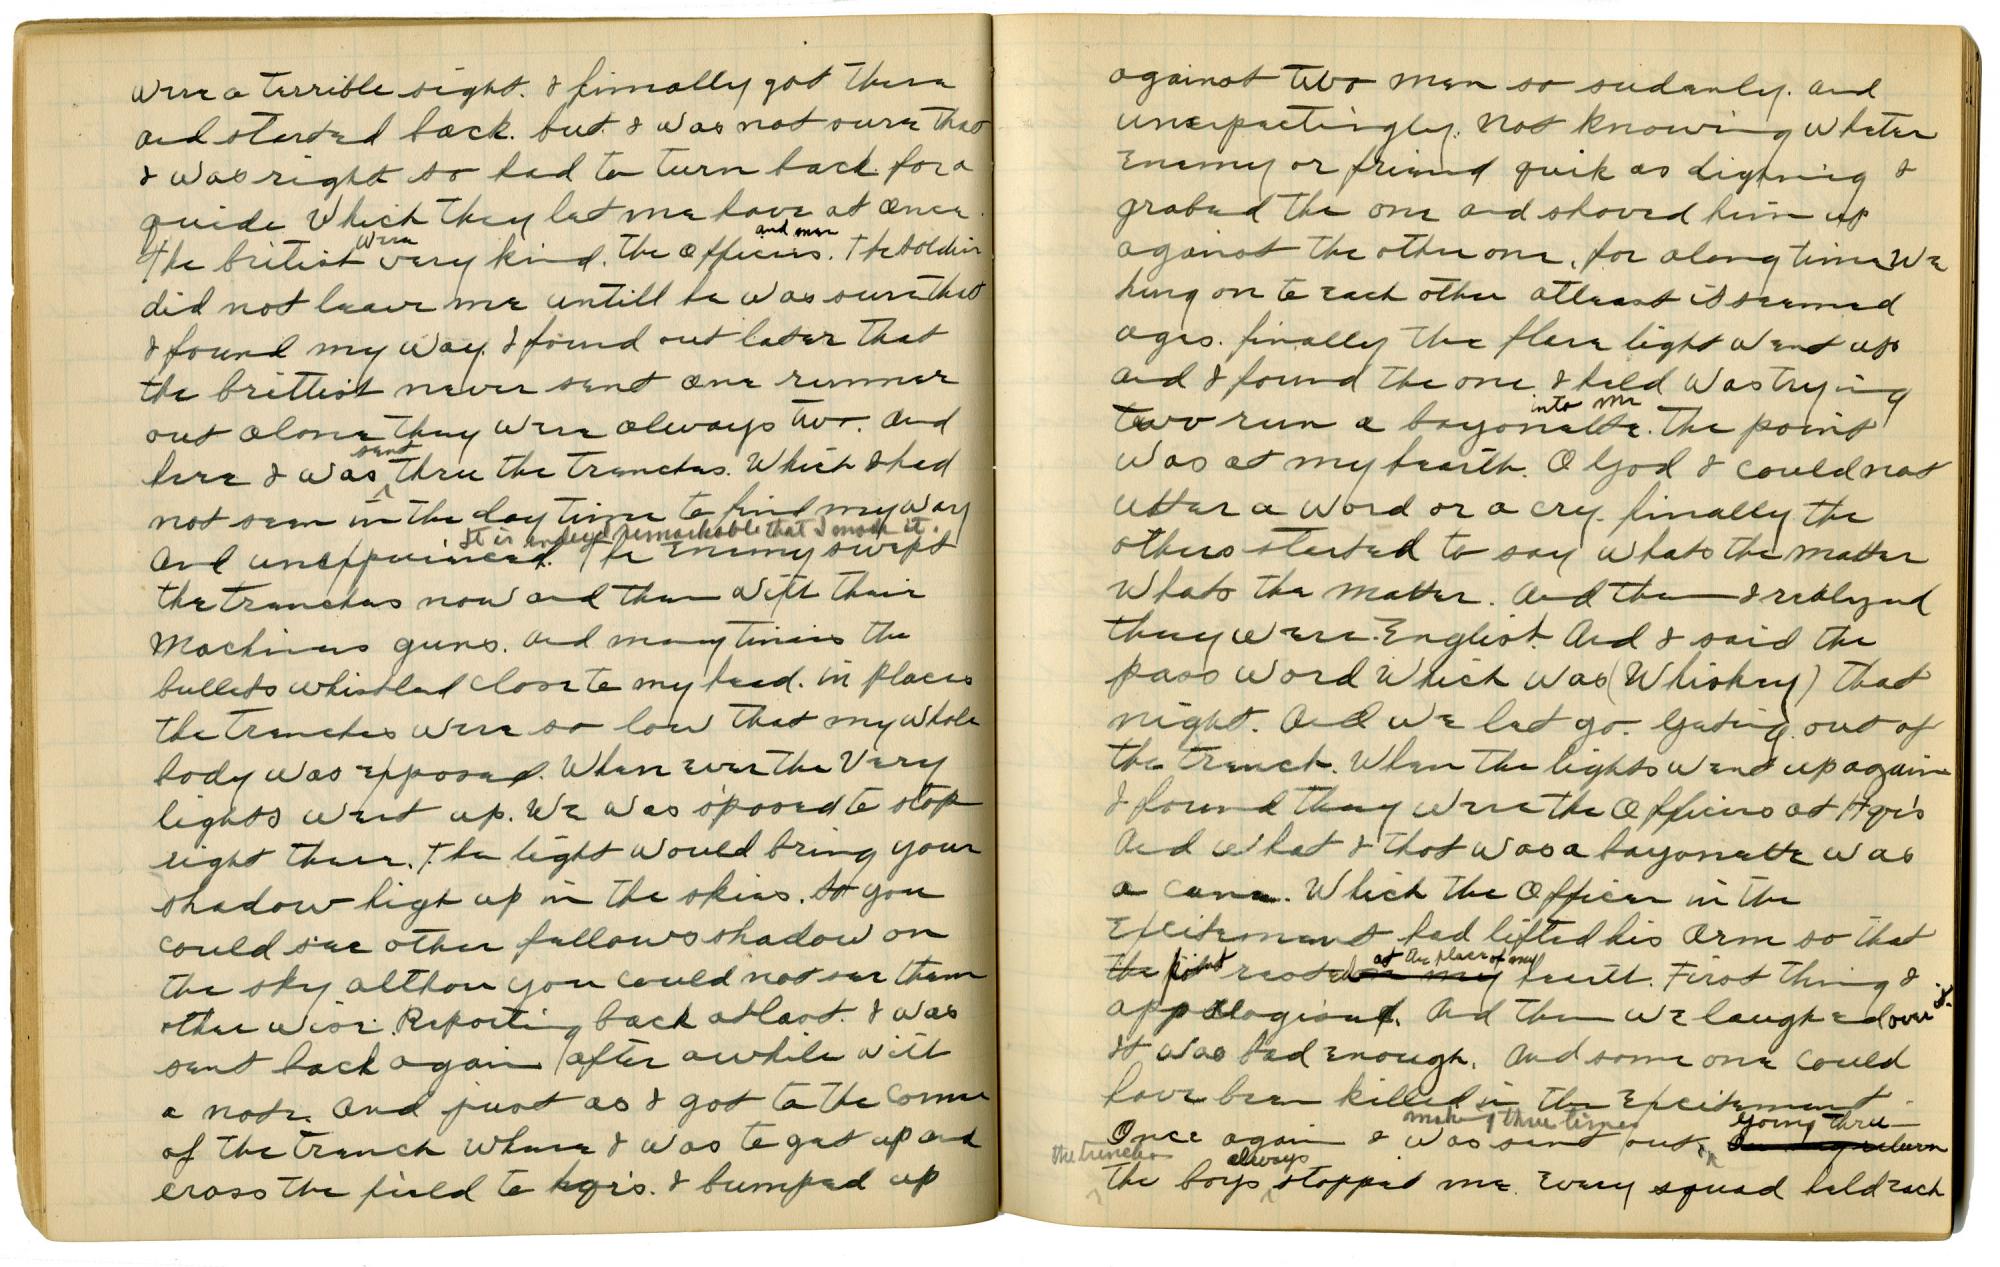 were a terrible sight. I finnally got there
and started back. but I was not sure that
I was right so had to turn back for a
guide Which they let me have at once.
The british were very kind. the Officers. and men The soldier
did not leave me untill he was sure that
I found my way. I found out later that
the brittish never sent one runner
out alone they were always two. and
here I was sent thru the trenches. Which I had
not seen in the day time to find my way
And It is indeed remarkable that I made it. The Enemy swept
the trenches now and then with their
Machines guns. and many times the
bullets whistled close to my head. in places
the trenches were so low that my whole
body was epposed. When ever the Very
lights went up. We was s'posed to stop
right there. The light would bring your
shadow high up in the skies. So you
could see other fellows shadow on
the sky althou you could not see them
other wise. Reporting back at last. I was
sent back again after awhile with
a note. And just as I got to the corner
of the trench where I was to get up and
cross the field to hqrs. I bumped up
against two men so sudenly. and
unexpectingly. Not knowing wheter
Enemy or friend quik as lightnig I
grabed the one and shoved him up
against the other one. for a long time We
hung on to each other atleast it seemed
ages. finally the flare light went up
and I found the one I held was trying
two run a bayonette into me. The point
was at my hearth. O God I could not
utter a word or a cry. finally the
others started to say whats the matter
Whats the matter. And then I reblyed
they were English. And I said the
pass word Which was (Whiskey) that
night. And we let go. Geting out of
the trench. When the lights went up again
I found they were the Officers at Hqr's
And what I thot was a bayonette was
a cane. Which the Officer in the
Epcitement had lifted his arm so that
the point rested on my at the place of my hearth. First thing I
appologised. And then we laughed over it.
It was bad enough. And some one could
have been killed in the Epcitement.
Once again I was sent out making three times going thru
the trenches
the boys always stopped me. Every squad held each